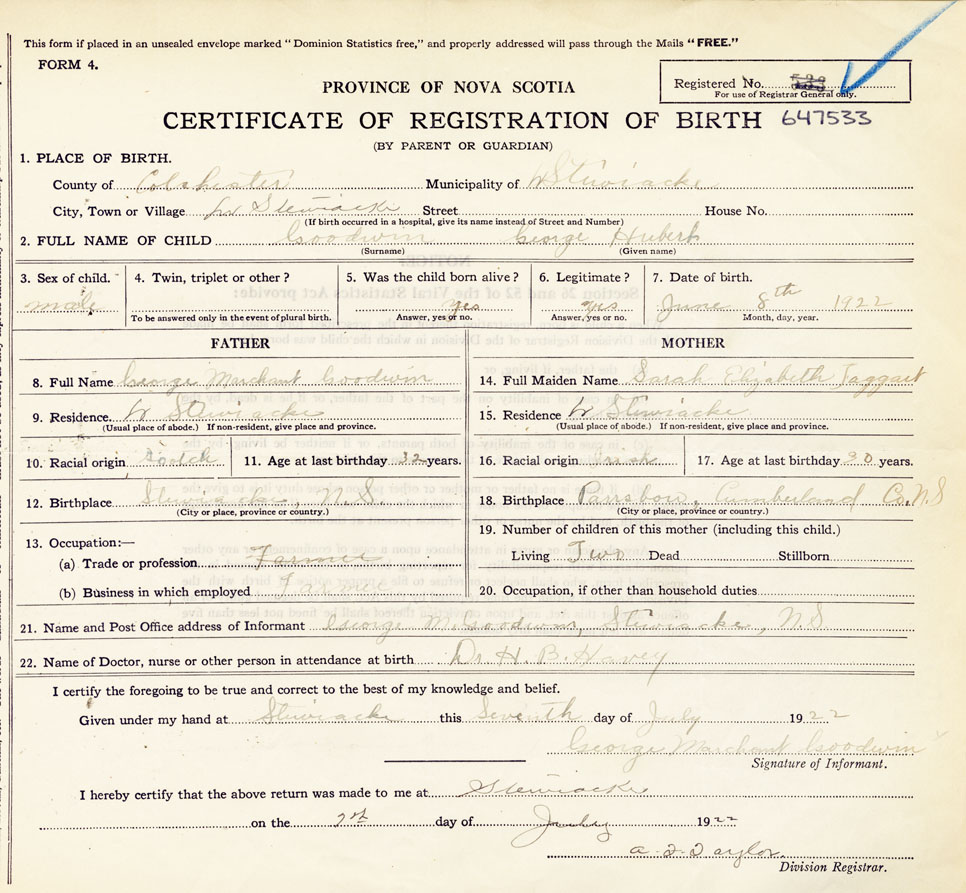 This form if placed in an unsealed envelope marked "Dominion Statistics free," and properly addressed will pass through the Mails "FREE."
FORM 4.
Registered No.
For use of Registrar General only.
PROVINCE OF NOVA SCOTIA
CERTIFICATE OF REGISTRATION OF BIRTH 647533
(BY PARENT OR GUARDIAN)
1. PLACE OF BIRTH.
County of Colchester Municipality of W Stewiacke
City, Town or Village W Stewiacke Street House No.
(If birth occurred in a hospital, give its name instead of Street and Number)
2. FULL NAME OF CHILD Goodwin George Hubert
(Surname) (Given name)
3. Sex of child. 4. Twin, triplet or other? 5. Was the child born alive? 6. Legitimate? 7. Date of birth.
male yes yes June 8th 1922
To be answered only in the event of plural birth. Answer, yes or no. Answer, yes or no. Month, day, year.
FATHER MOTHER
8. Full Name George Marchant Goodwin
9. Residence. W Stewiacke
(Usual place of abode.) If non-resident, give place and province.
10. Racial origin Scotch 11. Age at last birthday 32 years.
12. Birthplace Stewiacke, N.S.
(City or place, province or country.)
13. Occupation:—
(a) Trade or profession Farmer
(b) Business in which employed Farmer
14. Full Maiden Name Sarah Elizabeth Taggart
15. Residence W Stewiacke
(Usual place of abode.) If non-resident, give place and province.
16. Racial origin Irish 17. Age at last birthday 30 years.
18. Birthplace Parrsboro, Cumberland Co. N.S
(City or place, province or country.)
19. Number of children of this mother (including this child.)
Living Two Dead Stillborn
20. Occupation, if other than household duties
21. Name and Post Office address of Informant George M. Goodwin, Stewiacke, N.S
22. Name of Doctor, nurse or other person in attendance at birth Dr. H. B. Havey
I certify the foregoing to be true and correct to the best of my knowledge and belief.
Given under my hand at Stewiacke this Seventh day of July 1922
George Marchant Goodwin
Signature of Informant.
I hereby certify that the above return was made to me at Stewiacke
on the day of July 1922
Taylor
Division Registrar.